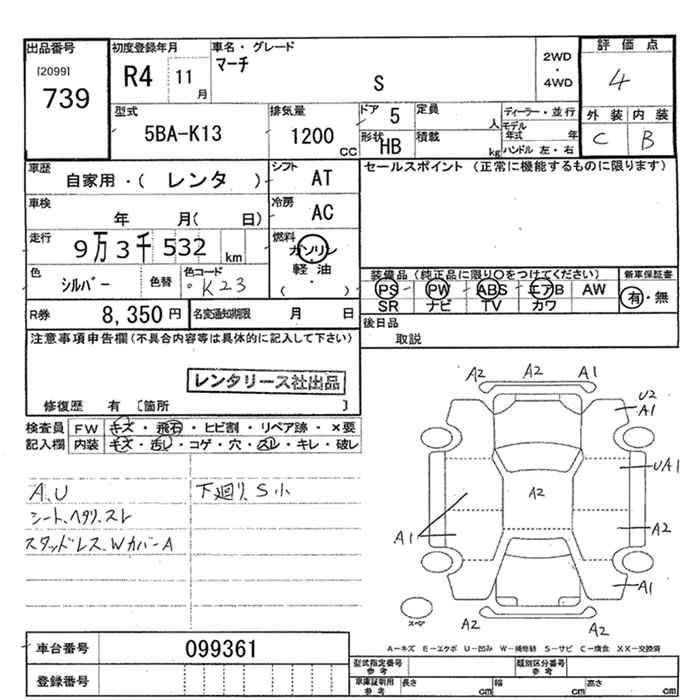 出品番号
[2099]
739
初度登録年月
R4 11月
車名・グレード
マーチ
S
2WD
・
4WD
評価点
4
外装 内装
C B
型式
5BA-K13
排気量
1200 CC
ドア 5
定員 人
形状 HB
積載 kg
ディーラー・並行
モデル年式 年
ハンドル 左・右
車歴
自家用・( レンタ )
シフト
AT
車検
年 月( 日)
冷房
AC
走行
9万3千532 km
燃料
ガソリン
軽油
( ・ )
色
シルバー
色替
色コード
K23
R券
8,350 円
名変通知期限 月 日
セールスポイント (正常に機能するものに限ります)
装備品 (純正品に限り○をつけてください)
PS PW ABS エアB AW
SR ナビ TV カワ
新車保証書
有・無
後日品
取説
注意事項申告欄(不具合内容等は具体的に記入して下さい)
レンタリース社出品
修復歴 有 〔箇所 〕
検査員記入欄
FW キズ・飛石・ヒビ割・リペア跡・×要
内装 キズ・汚レ・コゲ・穴・スレ・キレ・破レ
A、U
シート、ヘタリ、スレ
スタッドレス、WカバーA
下廻り、S小
A2 A2 A1
U2
A1
UA1
A2
A1 A2
A1
A2 A2
スペア
A-キズ E-エクボ U-凹み W-補修跡 S-サビ C-腐食 XX-交換済
車台番号
099361
登録番号
型式指定番号
参考
類別区分番号
参考
車庫証明用
参考
長さ cm 幅 cm 高さ cm